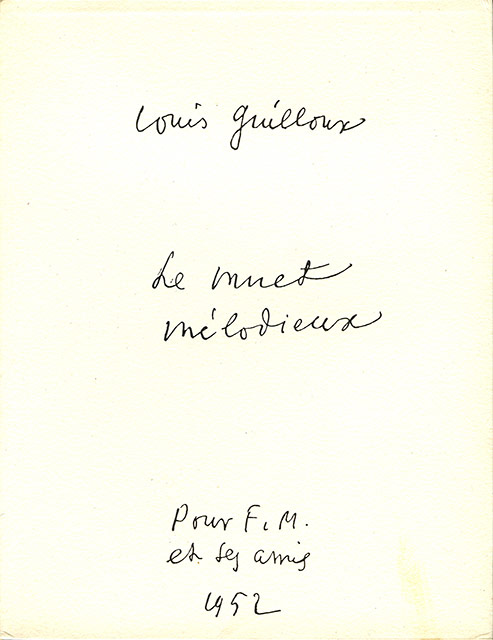 Louis Guilloux
Le muet
mélodieux
Pour F. M.
et ses amis
1952